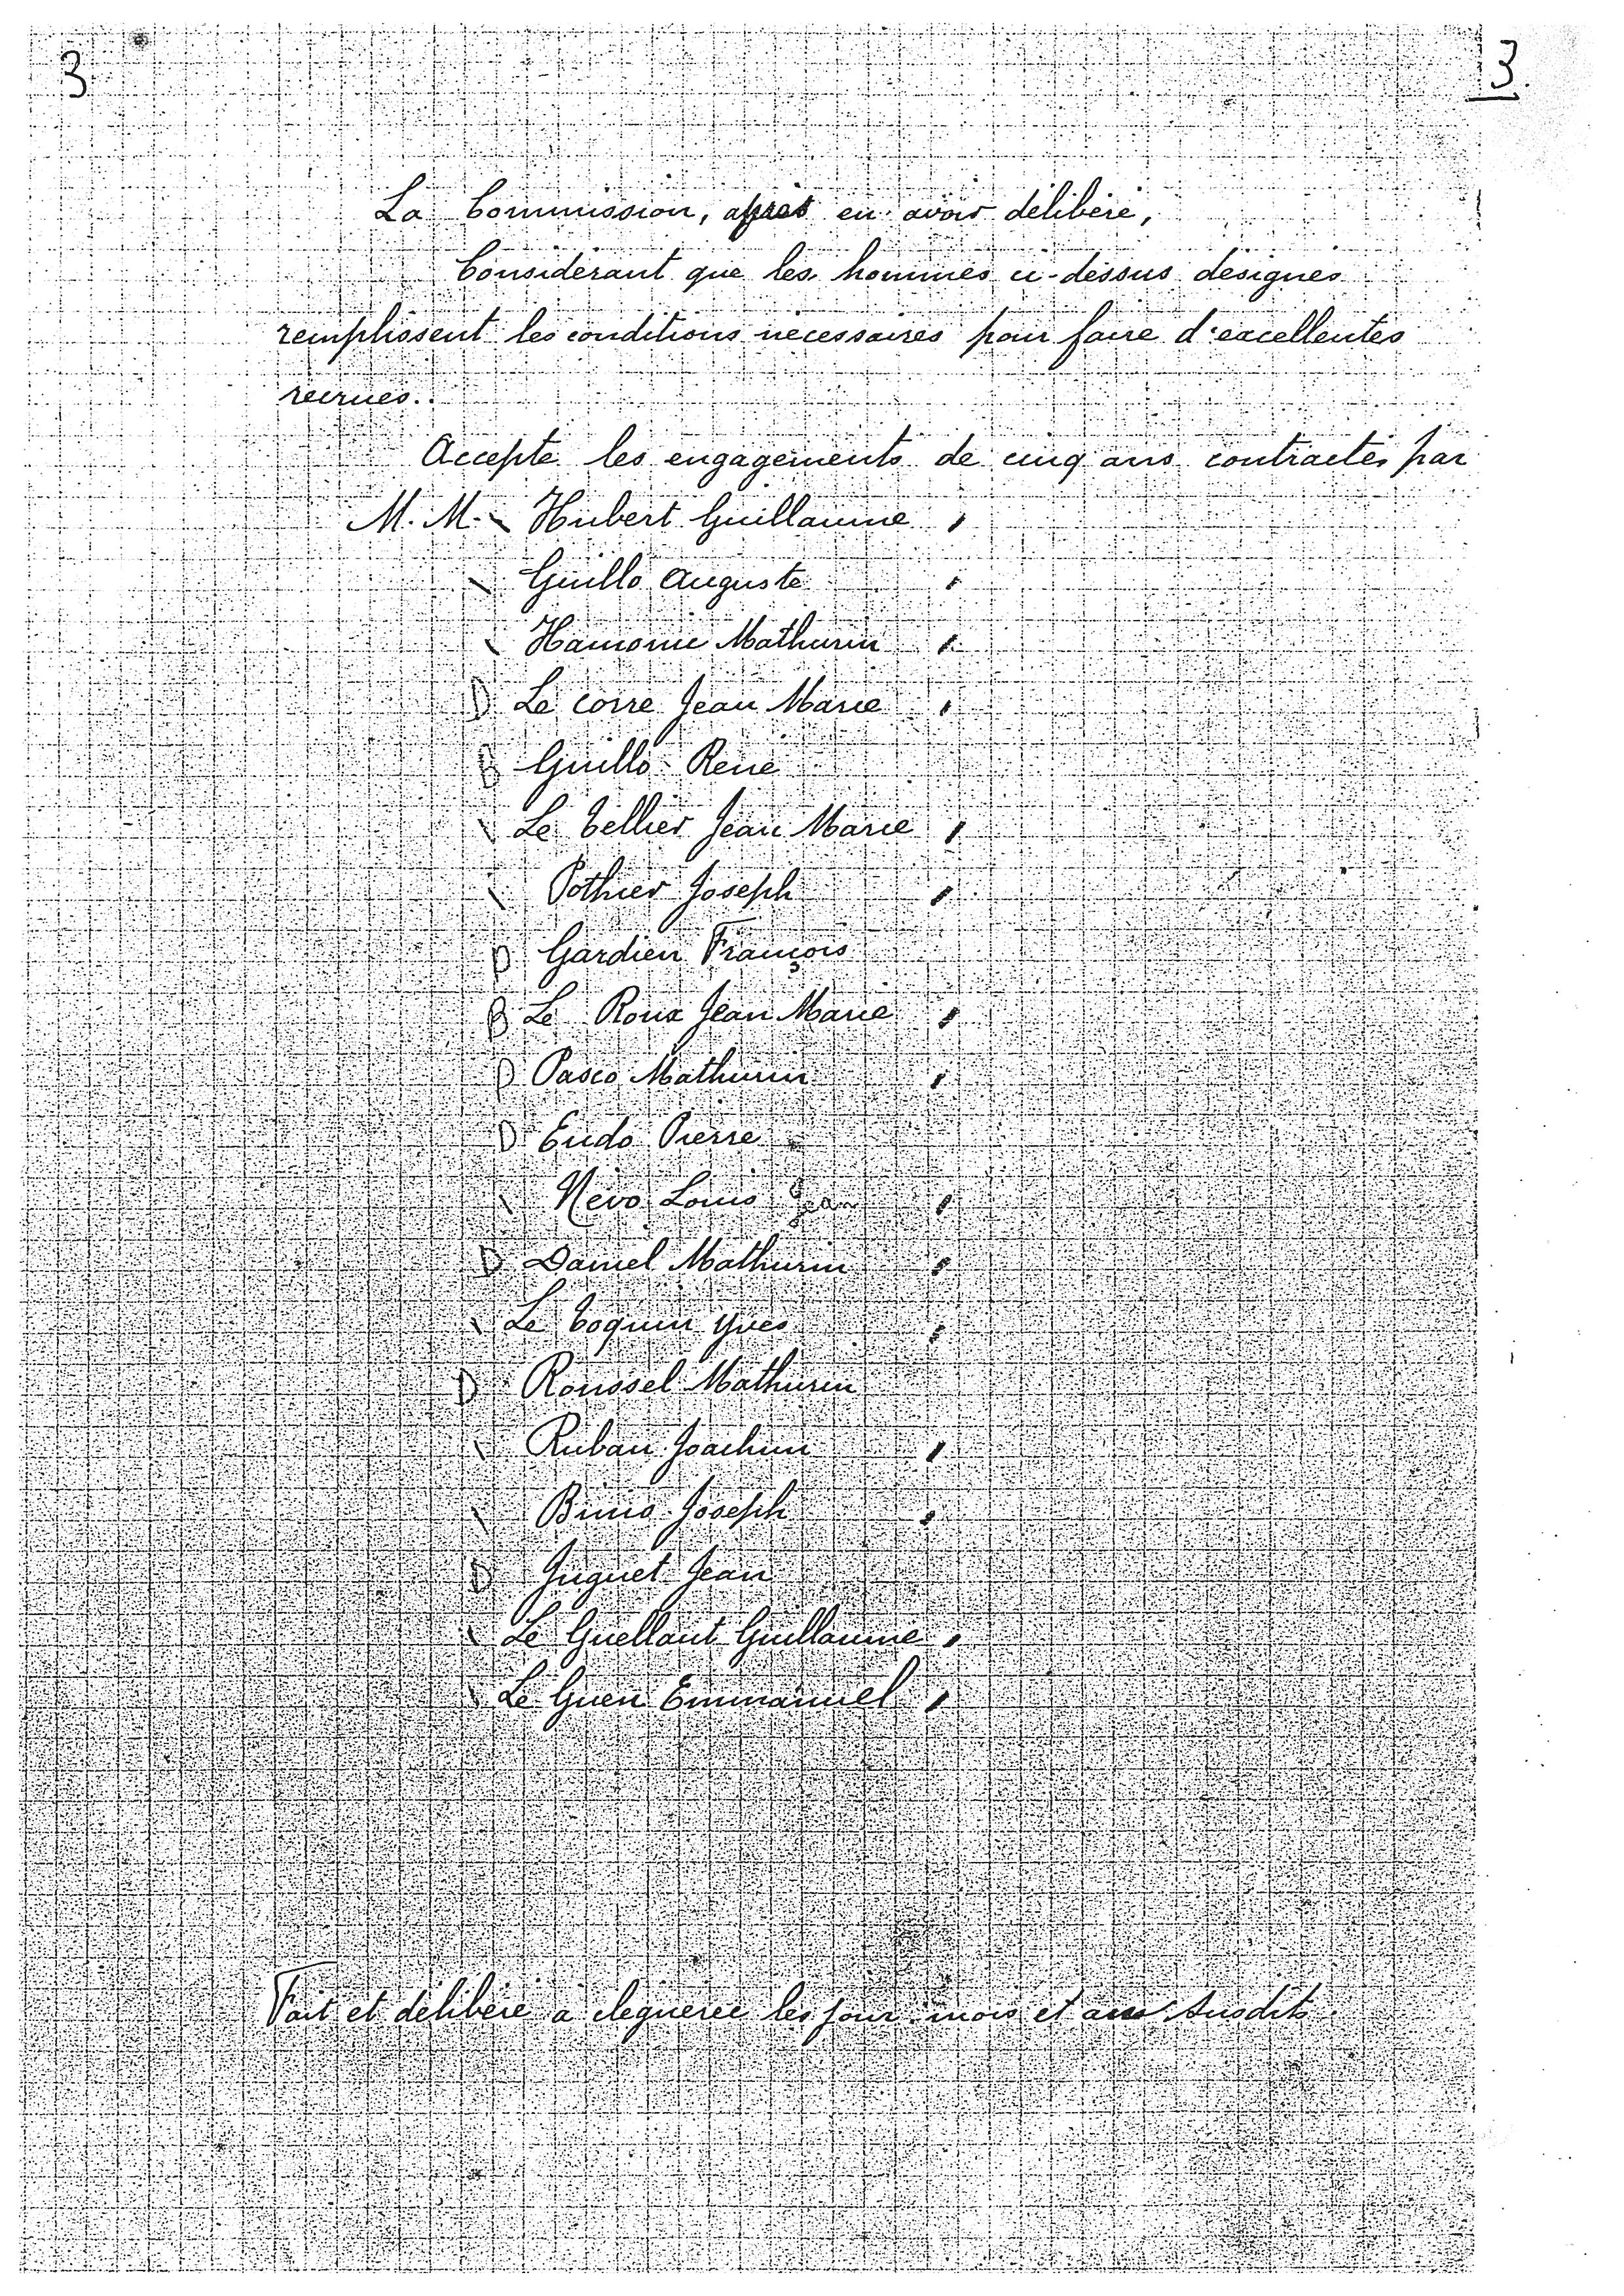 3 3
La Commission, après en avoir délibéré,
Considérant que les hommes ci-dessus désignés
remplissent les conditions nécessaires pour faire d'excellentes
recrues.
Accepte les engagements de cinq ans contractés par
M. M. \ Hubert Guillaume
\ Guillo Auguste
\ Hamonic Mathurin
D Le corre Jean Marie
B Guillo René
\ Le Tellier Jean Marie
\ Pothier Joseph
D Gardien François
B Le Roux Jean Marie
D Pasco Mathurin
D Eudo Pierre
\ Névo Louis Jean
D Daniel Mathurin
\ Le Toquin Yves
D Roussel Mathurin
\ Ruban Joachim
\ Binio Joseph
D Juguet Jean
\ Le Guellaut Guillaume
\ Le Guen Emmanuel
Fait et délibéré à cleguerec les jour mois et an susdits.